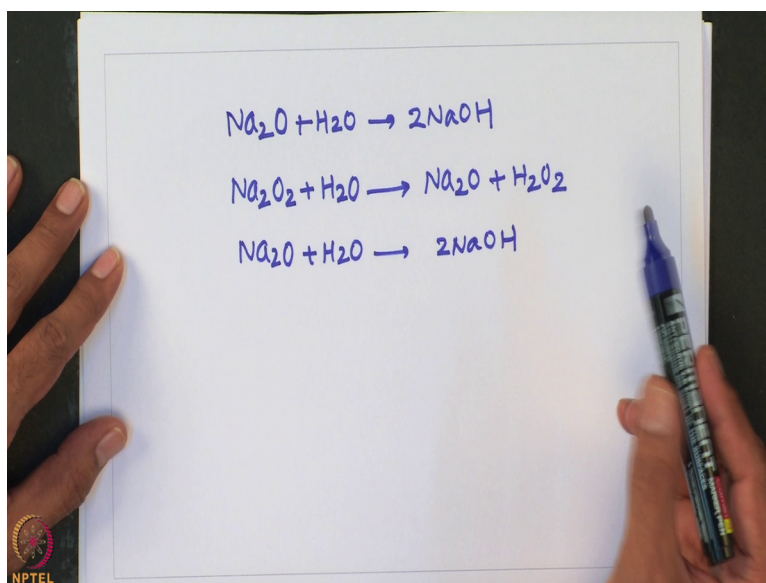 Na2O + H2O → 2NaOH
Na2O2 + H2O → Na2O + H2O2
Na2O + H2O → 2NaOH
NPTEL